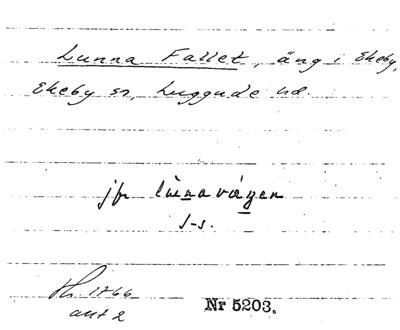 Lunna Fallet, äng i Ekeby,
Ekeby sn, Luggude hd.
jfr lùnavágen
s-s.
1766
akt 2
Nr 5203.